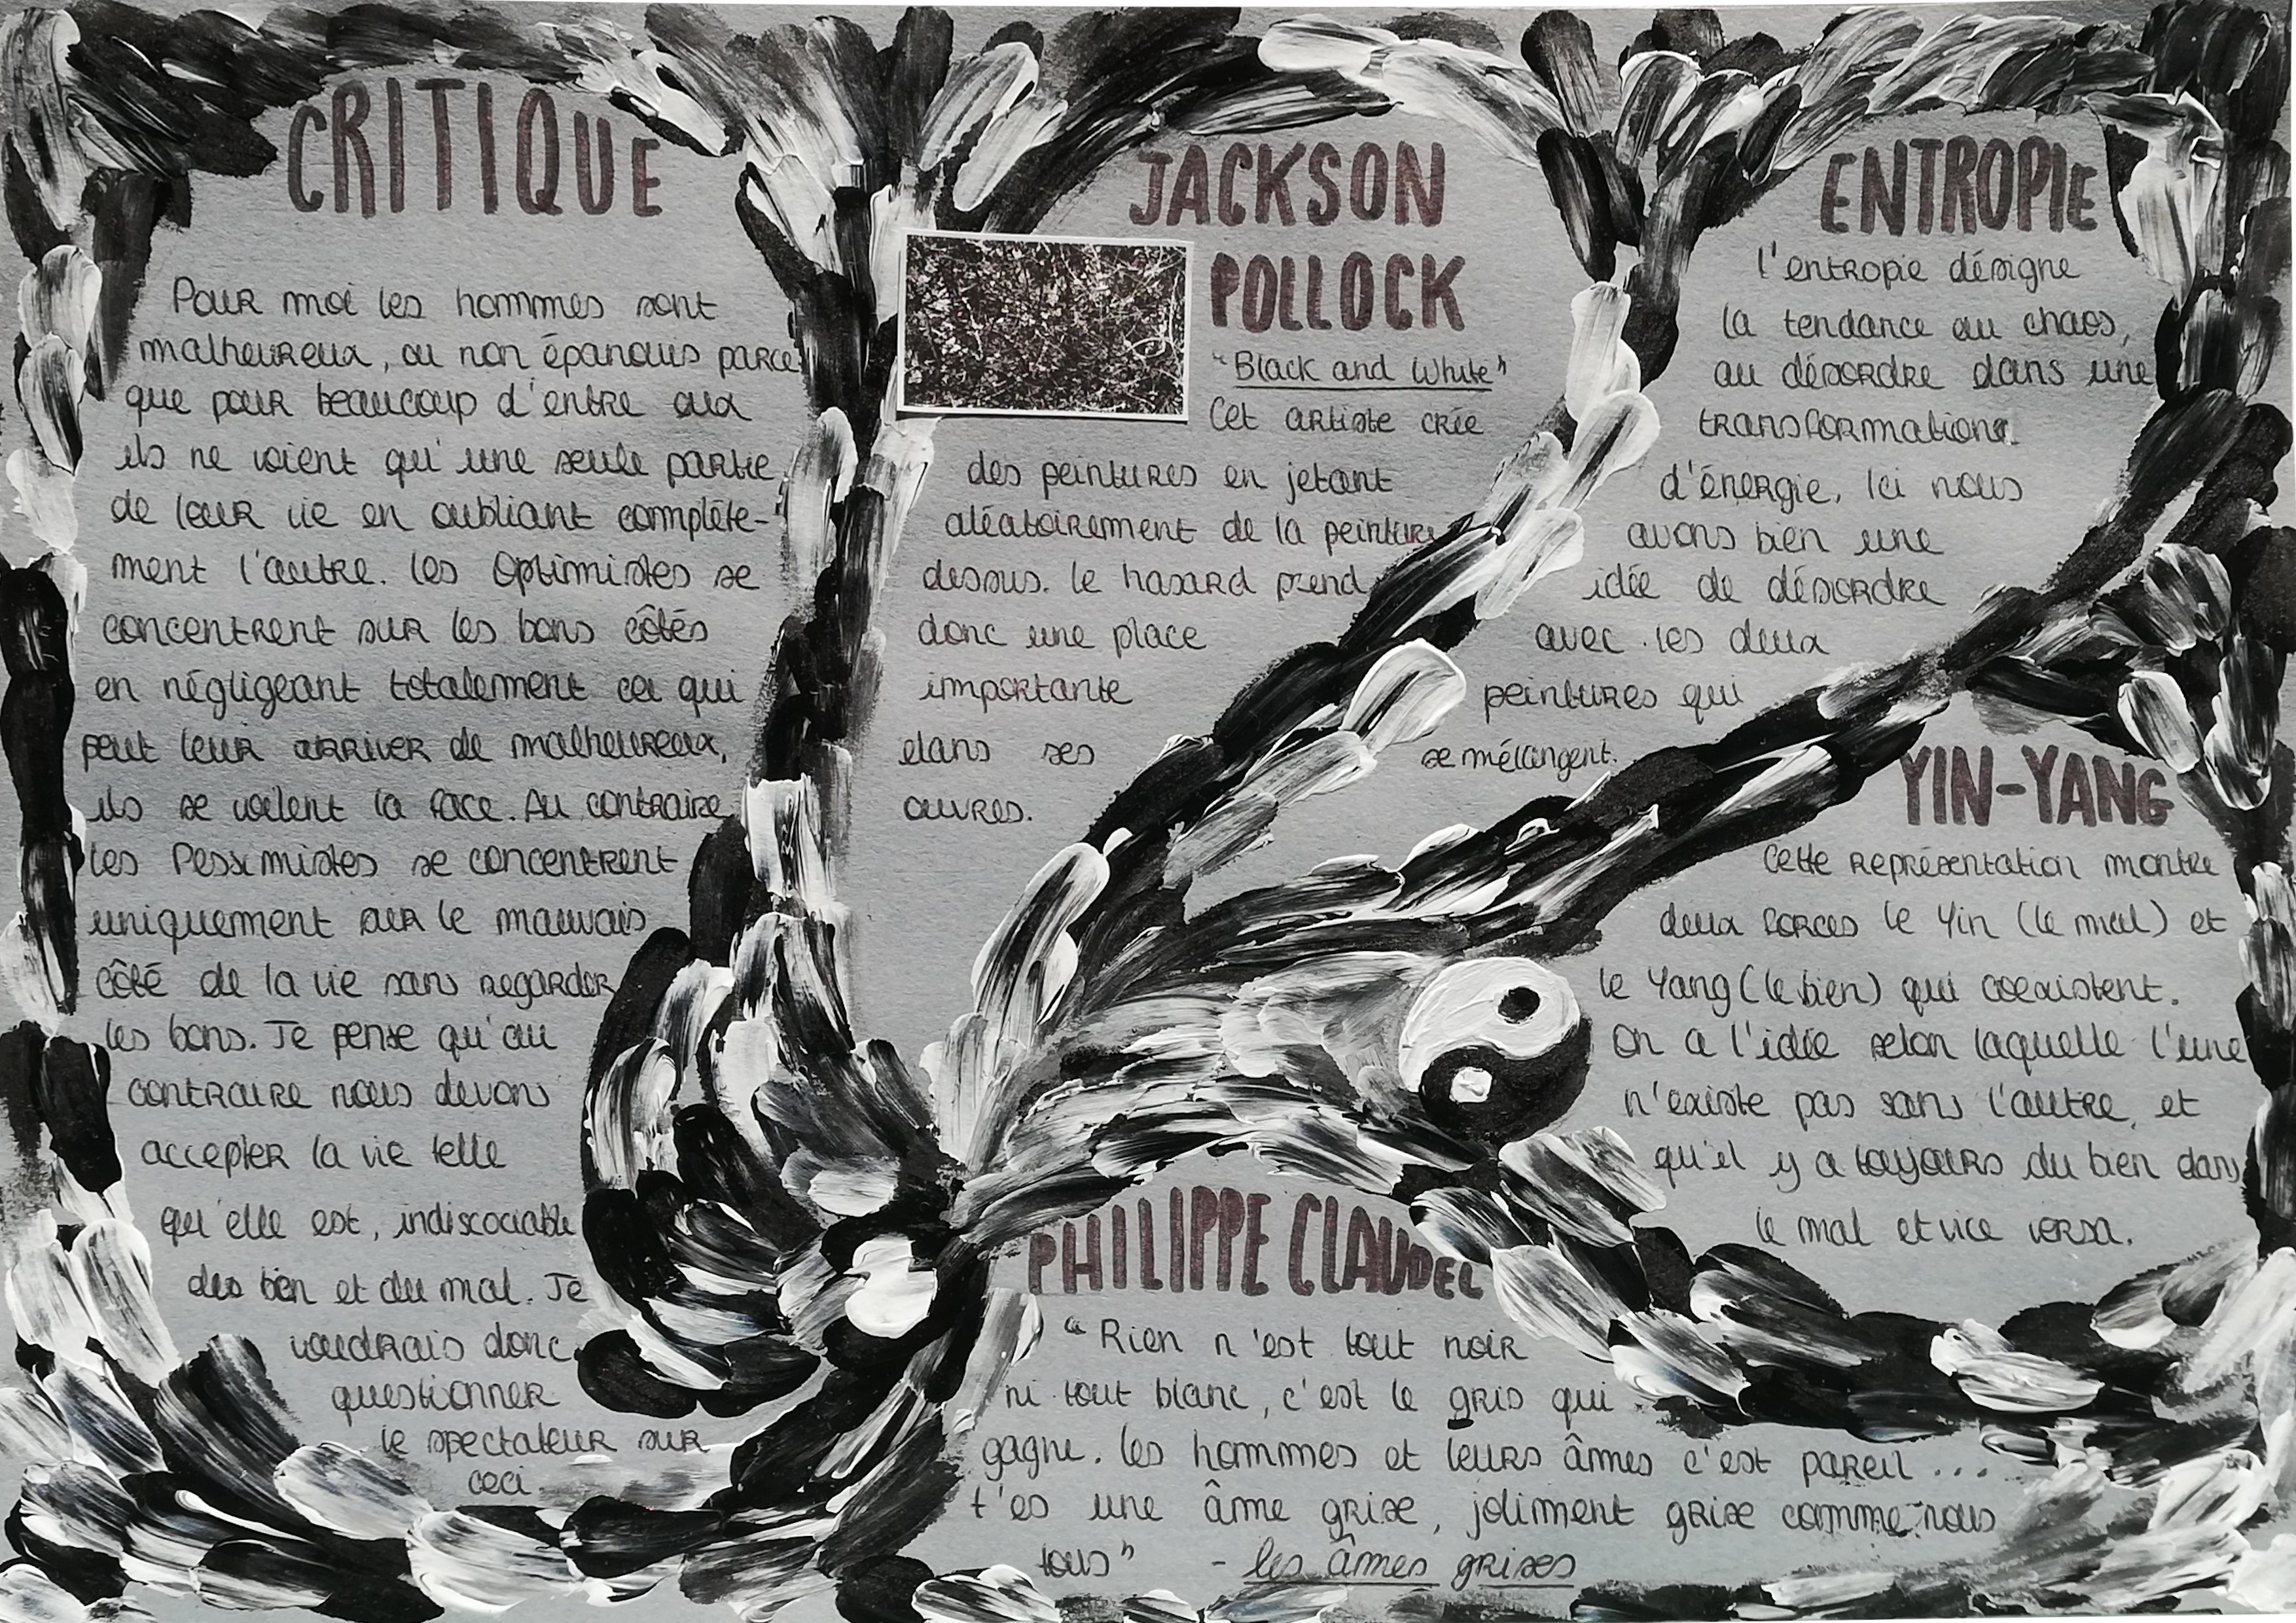 CRITIQUE
Pour moi les hommes sont
malheureux, ou non épanouis parce
que pour beaucoup d'entre eux
ils ne voient qu'une seule partie
de leur vie en oubliant complète-
ment l'autre. Les Optimistes se
concentrent sur les bons côtés
en négligeant totalement ce qui
peut leur arriver de malheureux,
ils se voilent la face. Au contraire
les Pessimistes se concentrent
uniquement sur le mauvais
côté de la vie sans regarder
les bons. Je pense qu'au
contraire nous devons
accepter la vie telle
qu'elle est, indiscociable
des bien et du mal. Je
voudrais donc
questionner
le spectateur sur
ceci.
JACKSON
POLLOCK
"Black and White"
Cet artiste crée
des peintures en jetant
aléatoirement de la peinture
dessus. Le hasard prend
donc une place
importante
dans ses
œuvres.
ENTROPIE
L'entropie désigne
la tendance au chaos,
au désordre dans une
transformation
d'énergie. Ici nous
avons bien une
idée de désordre
avec les deux
peintures qui
se mélangent.
YIN-YANG
Cette représentation montre
deux forces le Yin (le mal) et
le Yang (le bien) qui coexistent.
On a l'idée selon laquelle l'une
n'existe pas sans l'autre, et
qu'il y a toujours du bien dans
le mal et vice versa.
PHILIPPE CLAUDEL
"Rien n'est tout noir
ni tout blanc, c'est le gris qui
gagne. Les hommes et leurs âmes c'est pareil...
t'es une âme grise, joliment grise comme nous
tous" - les âmes grises